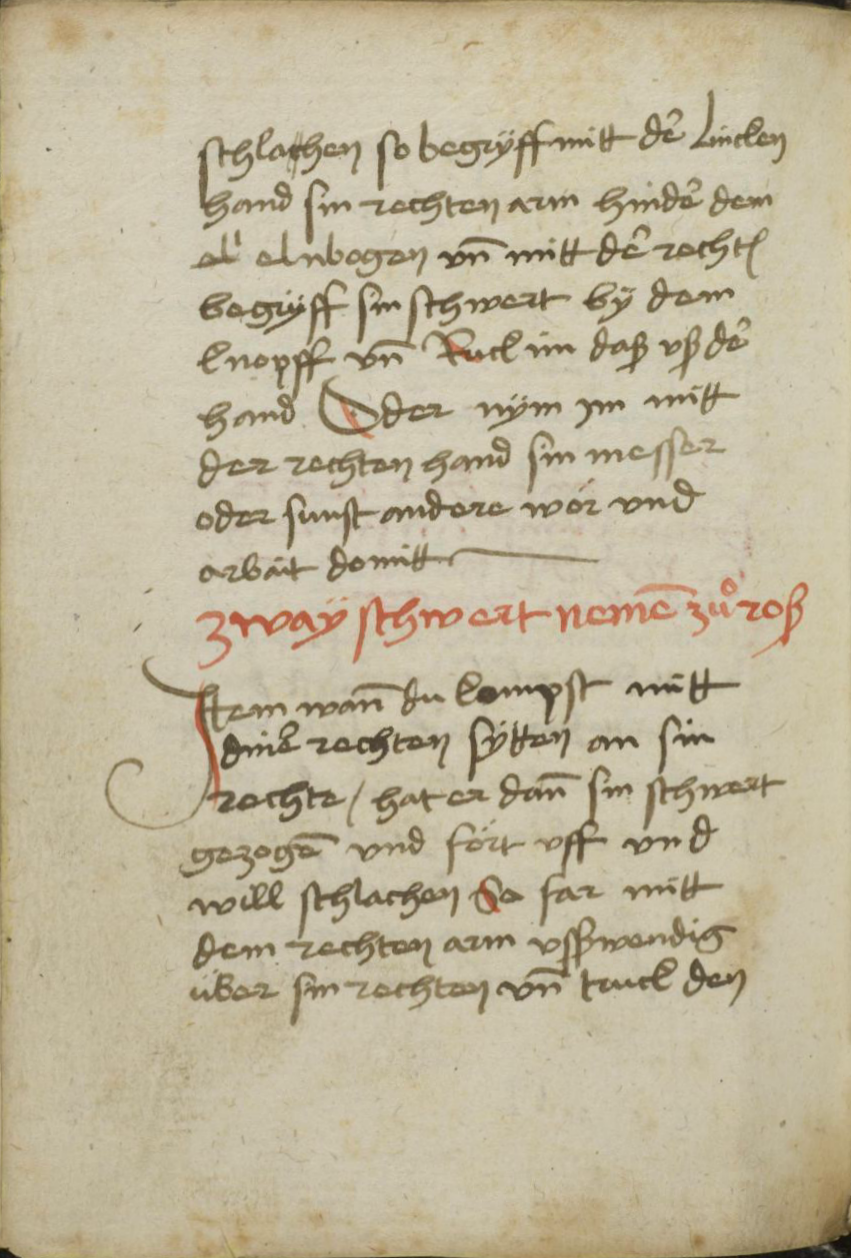 schlachen so begryff mitt der̄ lincken
hand sin rechten arm hinder̄ dem
elnbogen vn̄ mitt der̄ recht
begryff sin schwert by dem
knopff vn̄ Ruck im daß vß der̄
hand Oder nym im mitt
der rechten hand sin messer
oder sunst andere wör vnd
arbait domitt
Zway schwert nemē zůroß
Item wan̄ du kompst mitt
diner̄ rechten sytten an sin
rechte / hat er dan̄ sin schwert
gezogē vnd fört vff vnd
will schlachen So far mitt
dem rechten arm vßwendig
über sin rechten vn̄ truck den